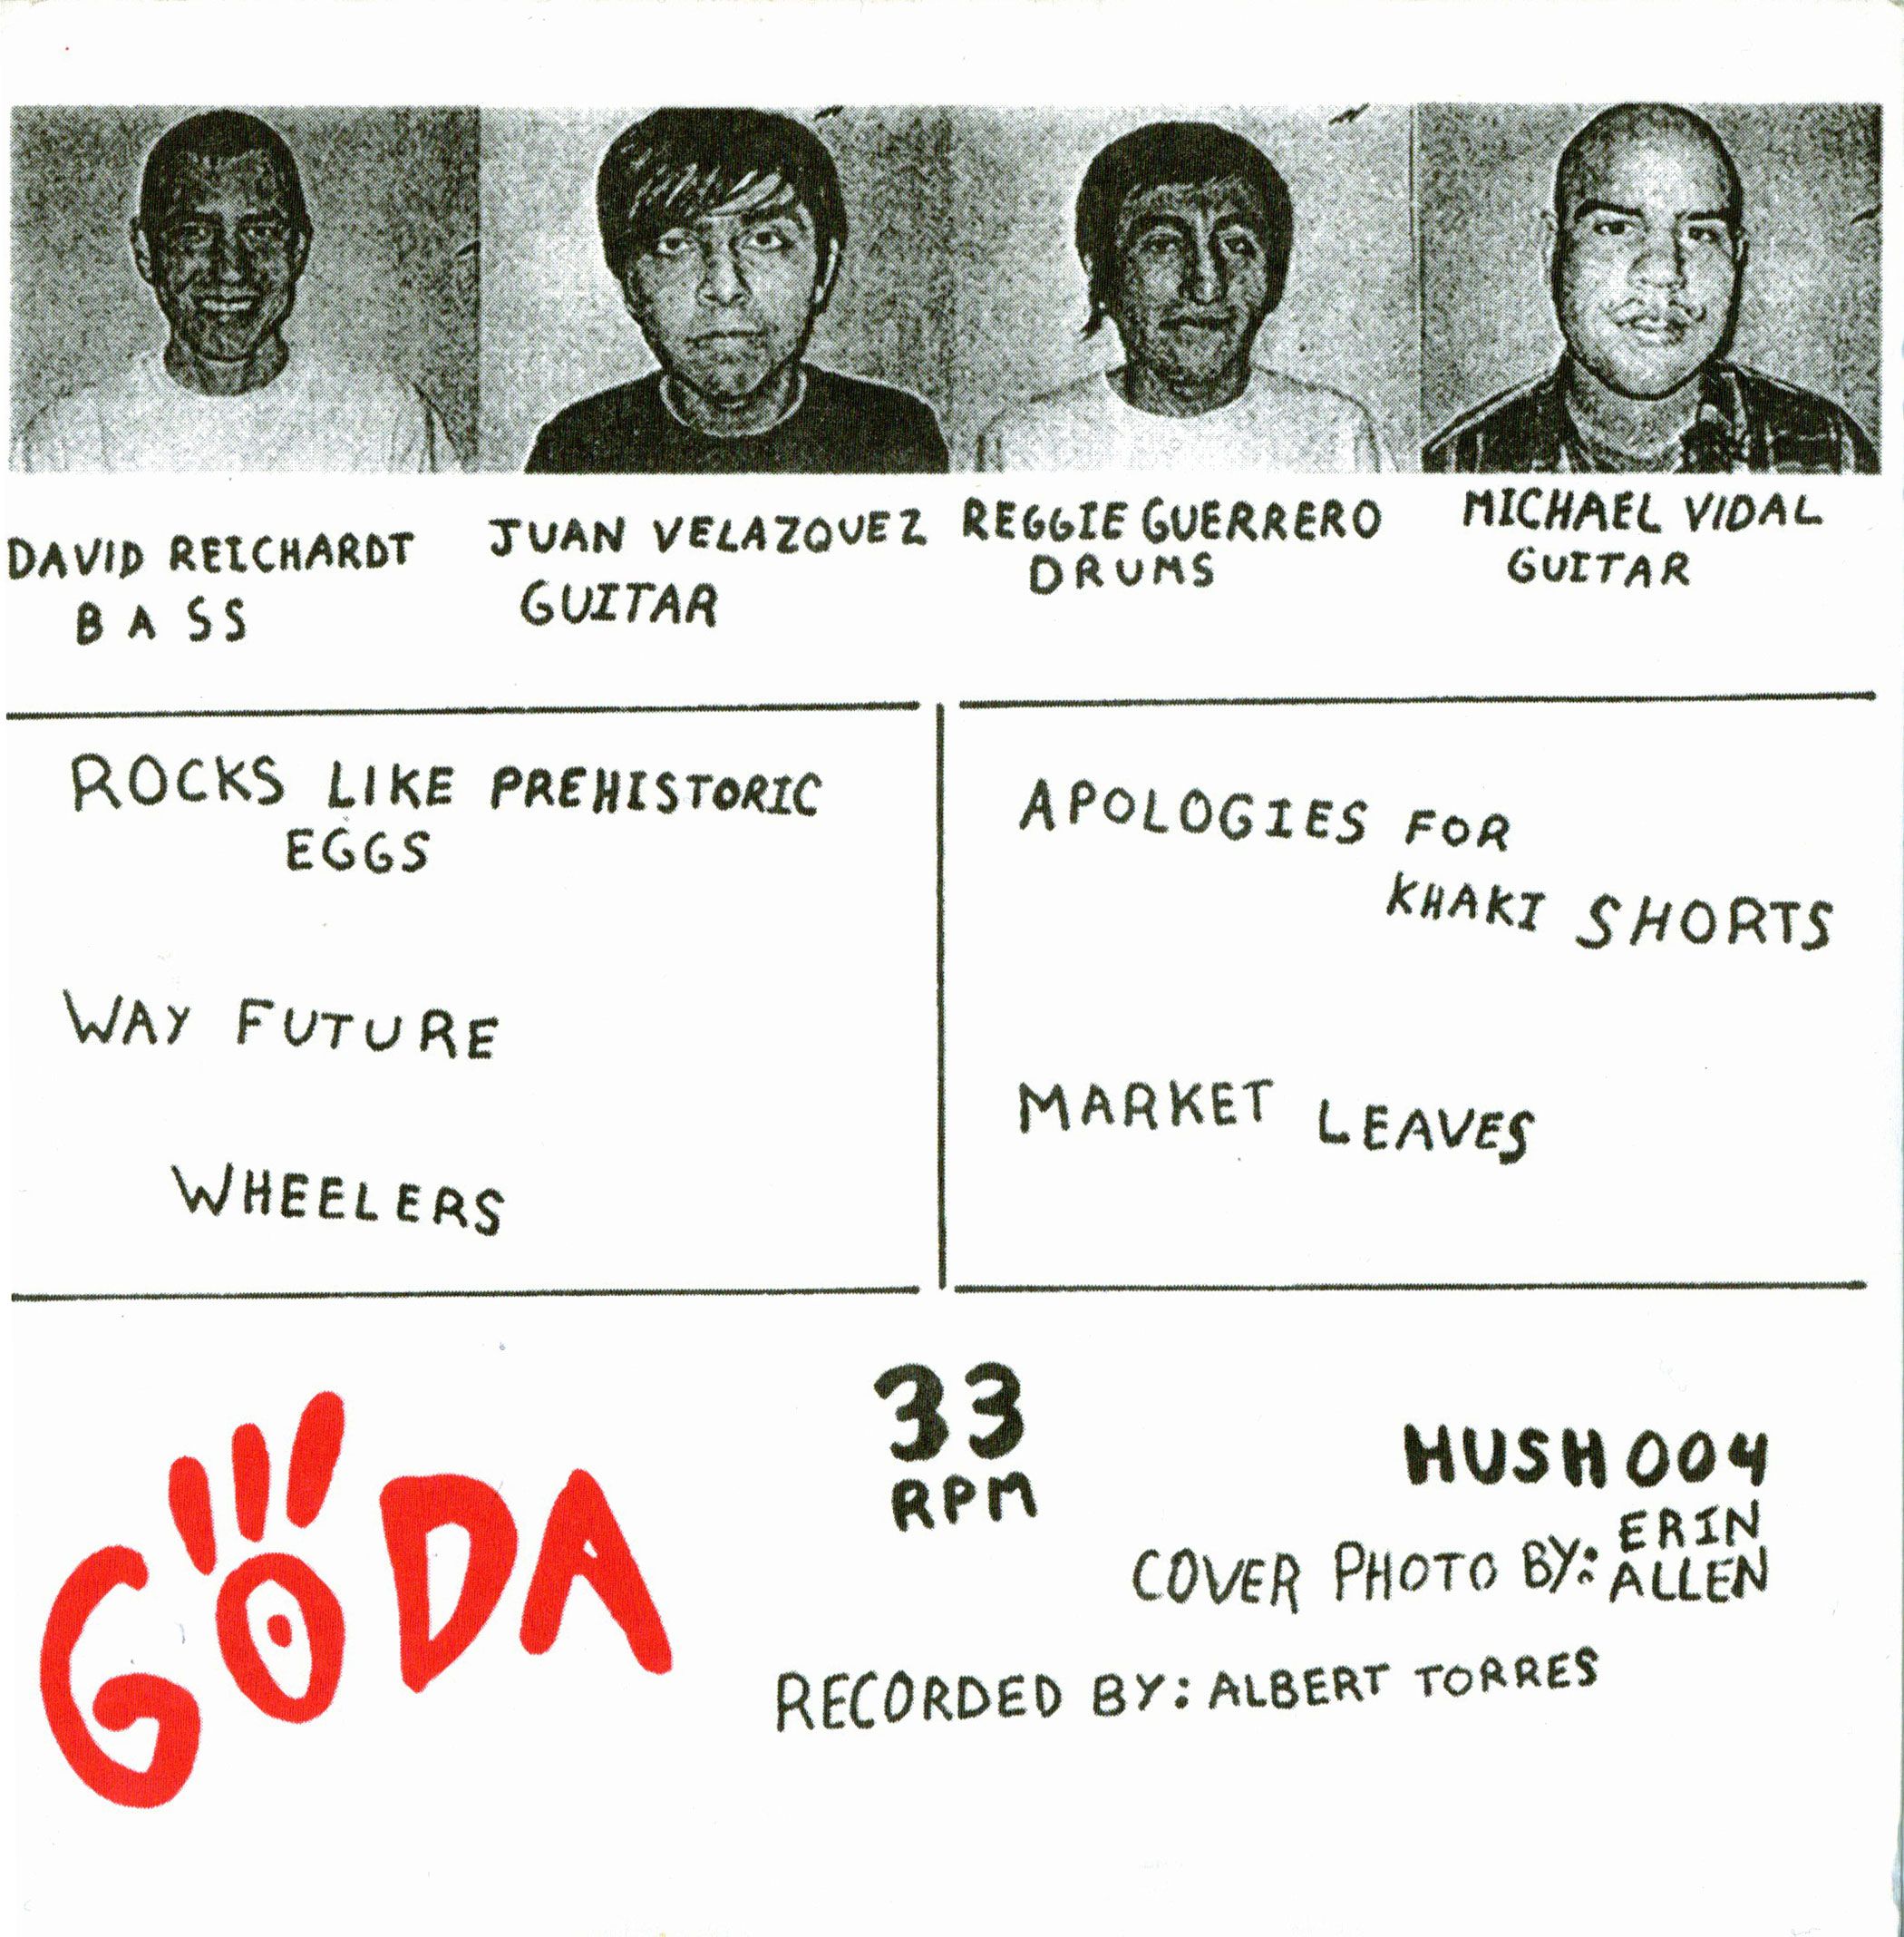 DAVID REICHARDT
BASS
JUAN VELAZQUEZ
GUITAR
REGGIE GUERRERO
DRUMS
MICHAEL VIDAL
GUITAR
ROCKS LIKE PREHISTORIC
EGGS
WAY FUTURE
WHEELERS
APOLOGIES FOR
KHAKI SHORTS
MARKET LEAVES
GODA
33
RPM
HUSH004
COVER PHOTO BY: ERIN
ALLEN
RECORDED BY: ALBERT TORRES